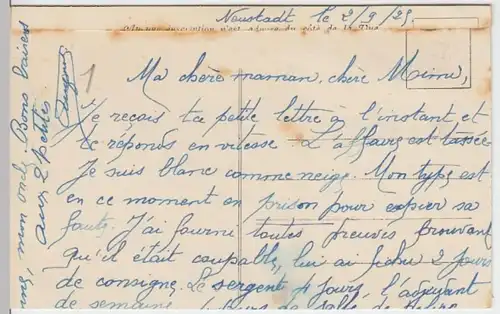 Neustadt le 2/9/25.
Aucune inscription n'est admise du côté de la Vue
1
Ma chère maman, chère Mimi,
Je reçois ta petite lettre à l'instant et
te réponds en vitesse. L'affaire est tassée.
Je suis blanc comme neige. Mon type est
en ce moment en prison pour expier sa
faute. J'ai fourni toutes preuves prouvant
qu'il était coupable, lui ai fichu 2 jours
de consigne. Le sergent 4 jours, l'adjudant
de semaine jours de salle de
mon oncle Bons baisers
aux 2 petits